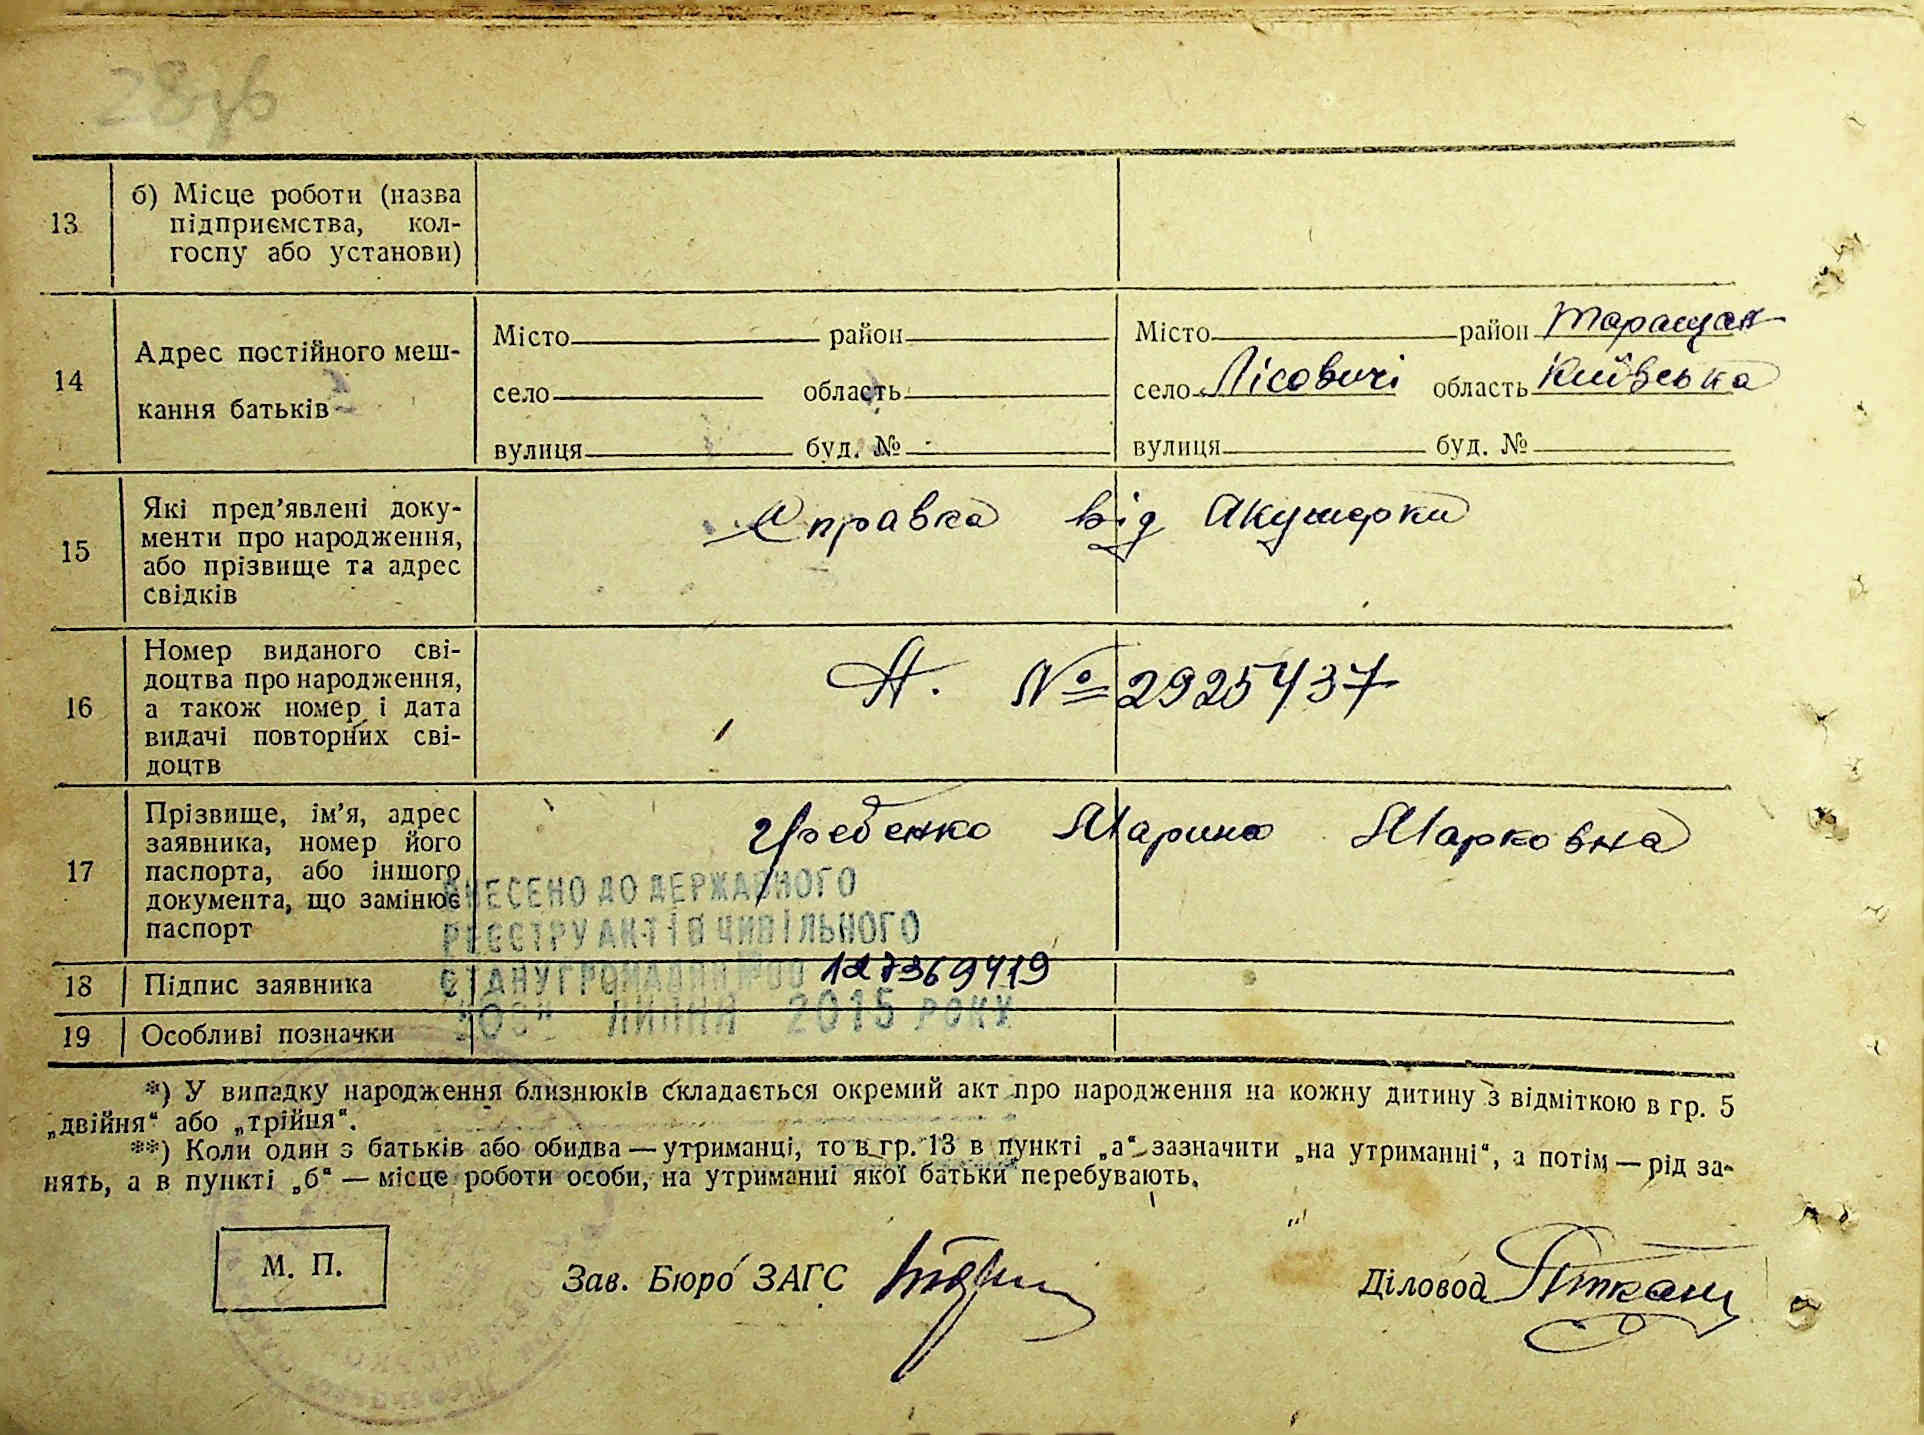 28зв
13 б) Місце роботи (назва
підприємства, кол-
госпу або установи)
14 Адрес постійного меш-
кання батьків
Місто район Місто район Таращан
село область село Лісовичі область Київська
вулиця буд. № вулиця буд. №
15 Які пред'явлені доку-
менти про народження,
або прізвище та адрес
свідків
Справка від Акушерки
16 Номер виданого сві-
доцтва про народження,
а також номер і дата
видачі повторних сві-
доцтв
А. № 2925437
17 Прізвище, ім'я, адрес
заявника, номер його
паспорта, або іншого
документа, що замінює
паспорт
Гребенко Марина Марковна
ВНЕСЕНО ДО ДЕРЖАВНОГО
РЕЄСТРУ АКТІВ ЦИВІЛЬНОГО
СТАНУ ГРОМАДЯН №00 127369419
"03" ЛИПНЯ 2015 РОКУ
18 Підпис заявника
19 Особливі позначки
*) У випадку народження близнюків складається окремий акт про народження на кожну дитину з відміткою в гр. 5
„двійня“ або „трійня“.
**) Коли один з батьків або обидва — утриманці, то в гр. 13 в пункті „а“ зазначити „на утриманні“, а потім — рід за-
нять, а в пункті „б“ — місце роботи особи, на утриманні якої батьки перебувають.
М. П.
Зав. Бюро ЗАГС Діловод